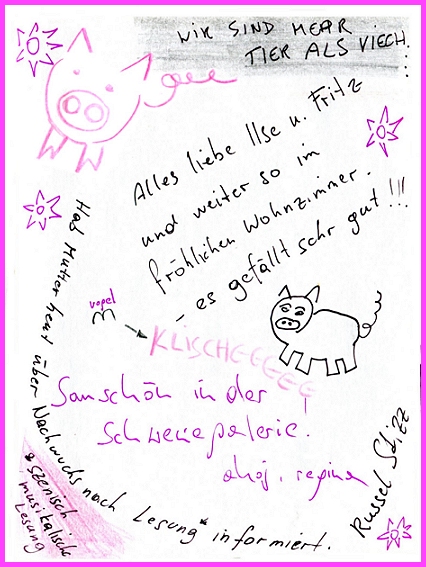 WIR SIND MEHR
TIER ALS VIECH....
Alles liebe Ilse u. Fritz
und weiter so im
fröhlichen Wohnzimmer.
– es gefällt sehr gut!!!
vogel
KLISCHEEEEEE
Sauschön in der
Schweinegalerie!
ahoj, regina
Hab Mutter heut über Nachwuchs nach Lesung* informiert.
* Szenisch
musikalische
Lesung
Russel